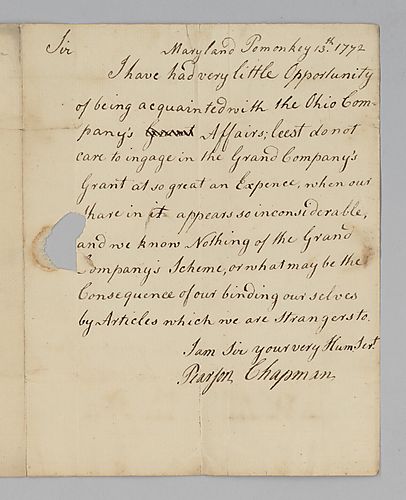 Sir Maryland Pomonkey 13.th 1772
I have had very little Opportunity
of being acquainted with the Ohio Com-
pany's Affairs; leest do not
care to ingage in the Grand Company's
Grant at so great an Expence, when our
share in it appears so inconsiderable,
and we know Nothing of the Grand
Company's Scheme, or what may be the
Consequence of our binding ourselves
by Articles which we are Strangers to.
I am Sir your very Hum. Ser.t
Pearson Chapman